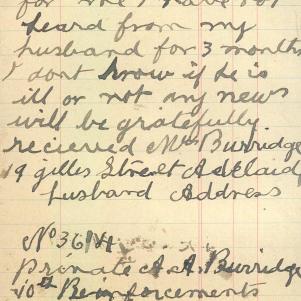 for me I have not
heard from my
husband for 3 months
I dont know if he is
ill or not any news
will be gratefully
recieved Mrs Burridge
19 gilles Street Adelaid
husband Address
No 3614
private A. A. Burridge
10th Reinforcements